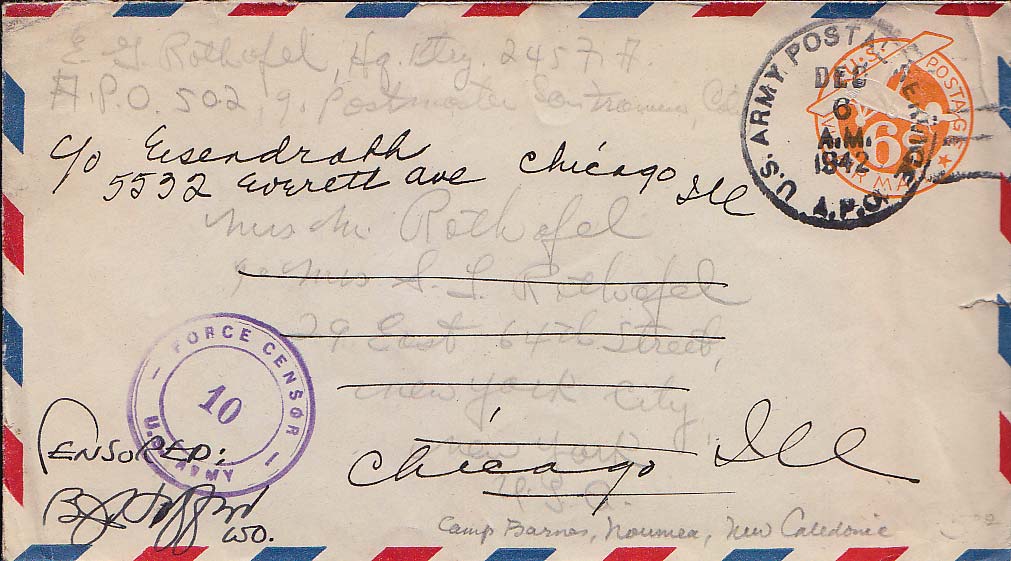 E. G. Rothafel, Hq. Btry. 245 F.A.
A.P.O. 502, % Postmaster San Francisco, Cal
U.S. ARMY POSTAL SERVICE
DEC
6
A.M.
1942
A.P.O.
U.S. POSTAGE
6¢
AIR MAIL
c/o Eisendrath
5532 Everett ave Chicago Ill
Mrs M. Rothafel
% Mrs S. L. Rothafel
29 East 64th Street,
New York City
New York
U.S.A.
Chicago Ill
FORCE CENSOR
10
U.S. ARMY
CENSORED:
WO.
Camp Barnes, Noumea, New Caledonia